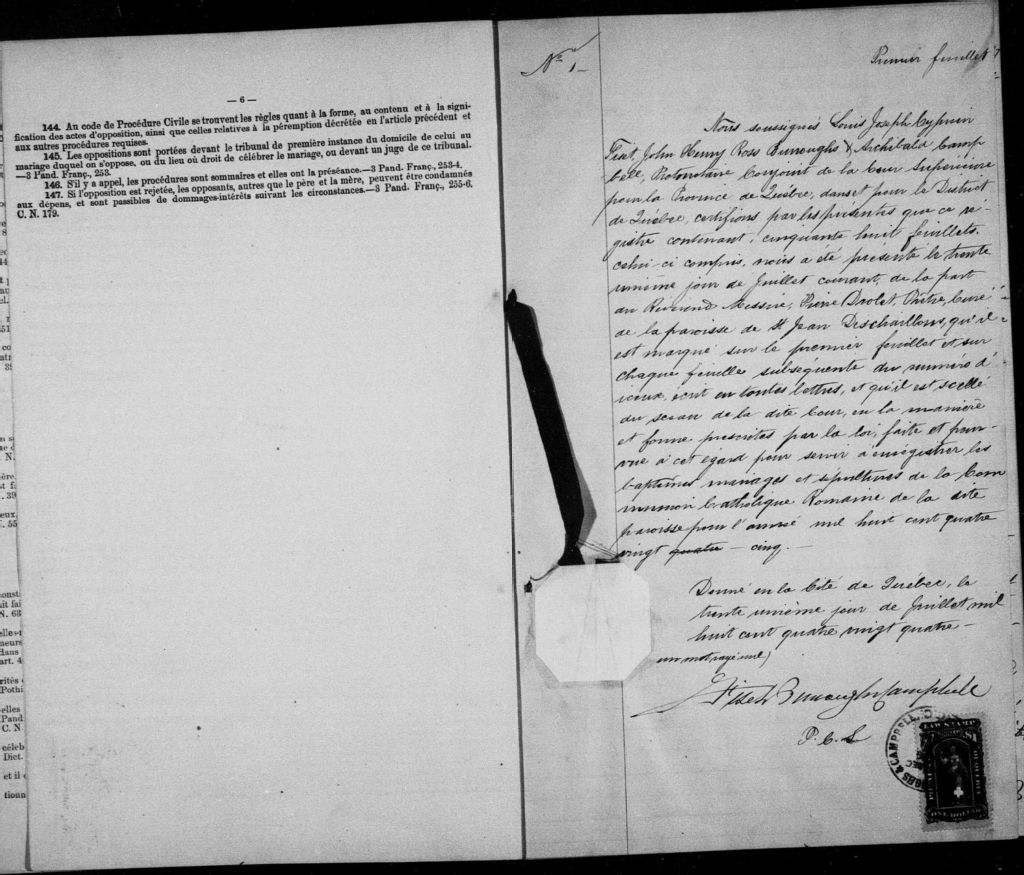 — 6 —
144. Au code de Procédure Civile se trouvent les règles quant à la forme, au contenu et à la signi-
fication des actes d'opposition, ainsi que celles relatives à la péremption décrétée en l'article précédent et
aux autres procédures requises.
145. Les oppositions sont portées devant le tribunal de première instance du domicile de celui au
mariage duquel on s'oppose, ou du lieu où droit de célébrer le mariage, ou devant un juge de ce tribunal.
—3 Pand. Franç., 253.
146. S'il y a appel, les procédures sont sommaires et elles ont la préséance.—3 Pand. Franç., 253-4.
147. Si l'opposition est rejetée, les opposants, autres que le père et la mère, peuvent être condamnés
aux dépens, et sont passibles de dommages-intérêts suivant les circonstances.—3 Pand. Franç., 255-6.
C. N. 179.
No. 1
Premier feuillet
Nous soussignés Louis Joseph Cyprien
Fiset, John Henry Ross Burroughs & Archibald Camp
bell, Protonotaire Conjoint de la Cour Supérieure
pour la Province de Québec, dans et pour le District
de Québec, certifions par les présentes que ce ré-
gistre contenant, cinquante huit feuillets,
celui-ci compris, nous a été présenté le trente
unième jour de Juillet courant, de la part
du Révérend Messire, Pierre Drolet, Prêtre, Curé
de la paroisse de St Jean Deschaillons, qu'il
est marqué sur le premier feuillet et sur
chaque feuille subséquente du numéro d'
iceux, écrit en toutes lettres, et qu'il est scellé
du sceau de la dite Cour, en la manière
et forme prescrites par la loi, faite et pour-
vue à cet égard pour servir à enregistrer les
baptêmes mariages et sépultures de la Com
munion Catholique Romaine de la dite
paroisse pour l'année mil huit cent quatre
vingt quatre — cinq. —
Donné en la Cité de Québec, le
trente unième jour de Juillet mil
huit cent quatre vingt quatre —
un mot rayé nul)
Fiset Burroughs Campbell
P. C. S
GHS & CAMPBELL
LAW STAMP
$1
ONE DOLLAR